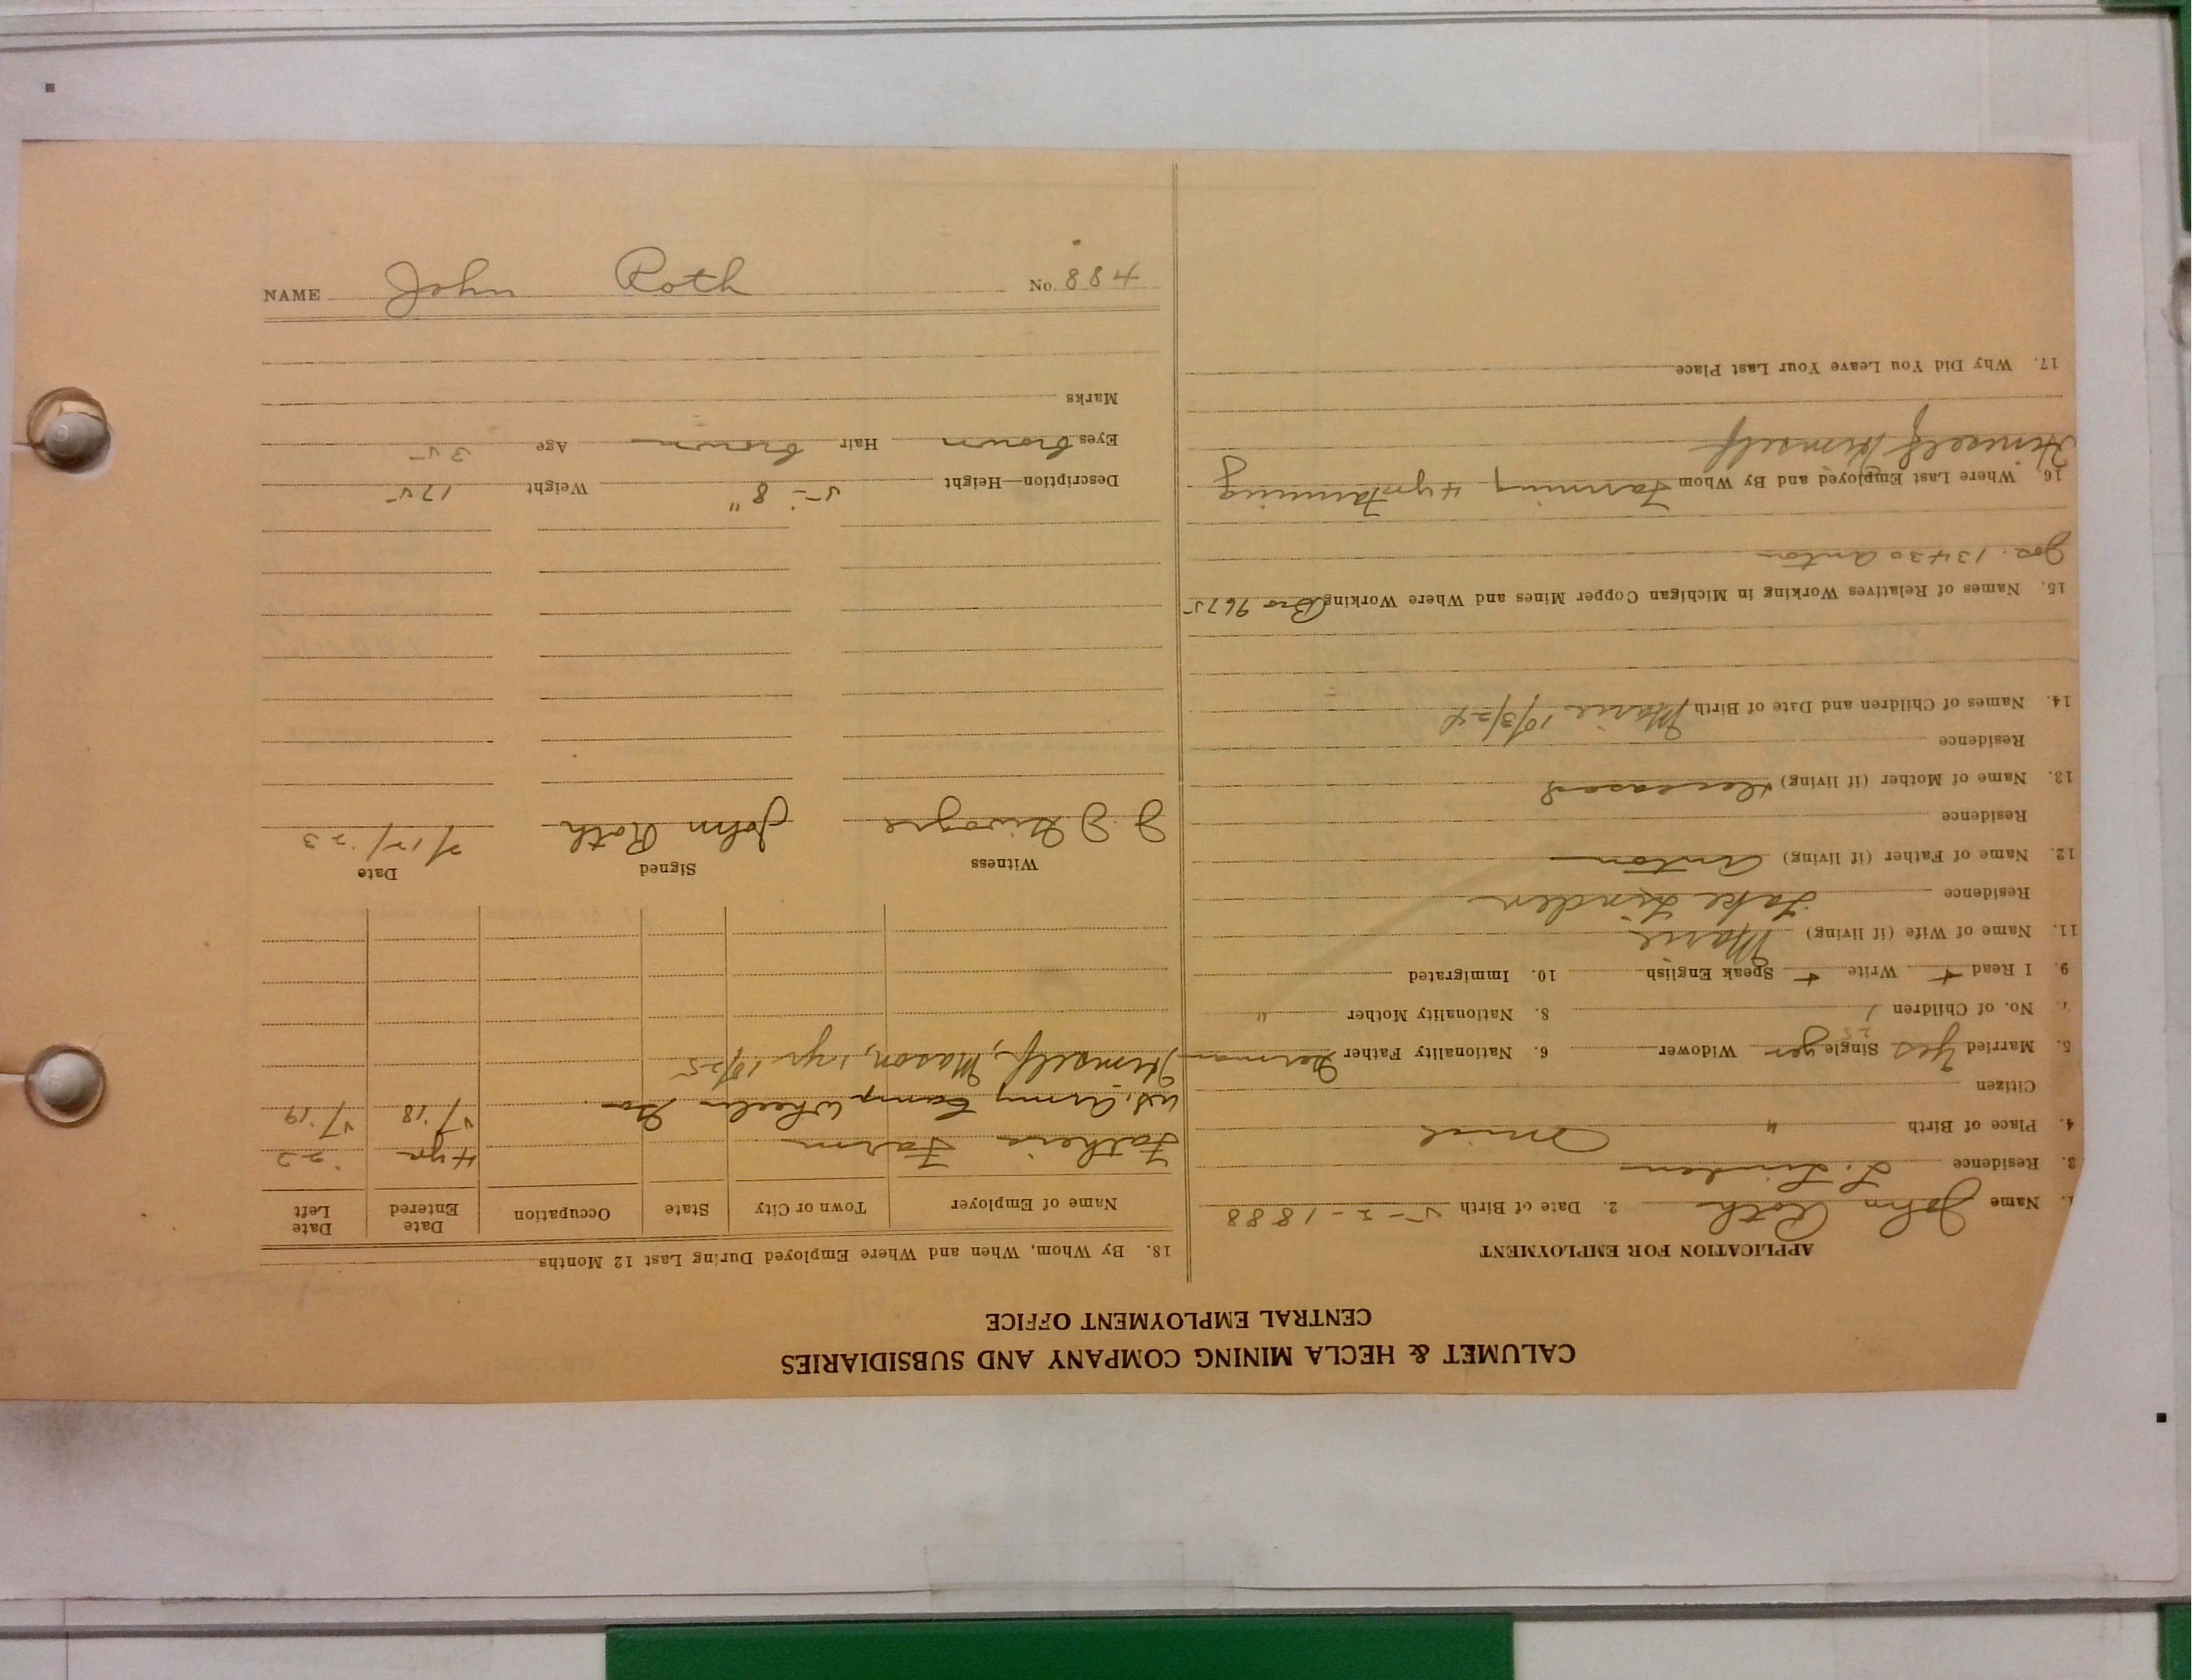 CALUMET & HECLA MINING COMPANY AND SUBSIDIARIES
CENTRAL EMPLOYMENT OFFICE
APPLICATION FOR EMPLOYMENT
1. Name John Roth 2. Date of Birth 5-2-1888
3. Residence L. Linden
4. Place of Birth " Mich
Citizen
5. Married Yes Single yes 25 Widower 6. Nationality Father German
7. No. of Children 1 8. Nationality Mother "
9. I Read + Write + Speak English 10. Immigrated
11. Name of Wife (if living) Marie
Residence Lake Linden
12. Name of Father (if living) Anton
Residence
13. Name of Mother (if living) deceased
Residence
14. Names of Children and Date of Birth Marie 10/3/24
15. Names of Relatives Working in Michigan Copper Mines and Where Working Bro 9675
Jos. 13430 Anton
16. Where Last Employed and By Whom Farming 4 yr Farming
Himself Himself
17. Why Did You Leave Your Last Place
18. By Whom, When and Where Employed During Last 12 Months
Name of Employer Town or City State Occupation Date Entered Date Left
Fathers Farm 4 yr '22
U.S. Army Camp Wheeler Ga. 5/'18 5/'19
Himself, Mason, 1 yr 10/25
Witness Signed Date
John Roth
Description—Height 5' - 8" Weight 175
Eyes brown Hair brown Age 35
Marks
NAME John Roth No. 884